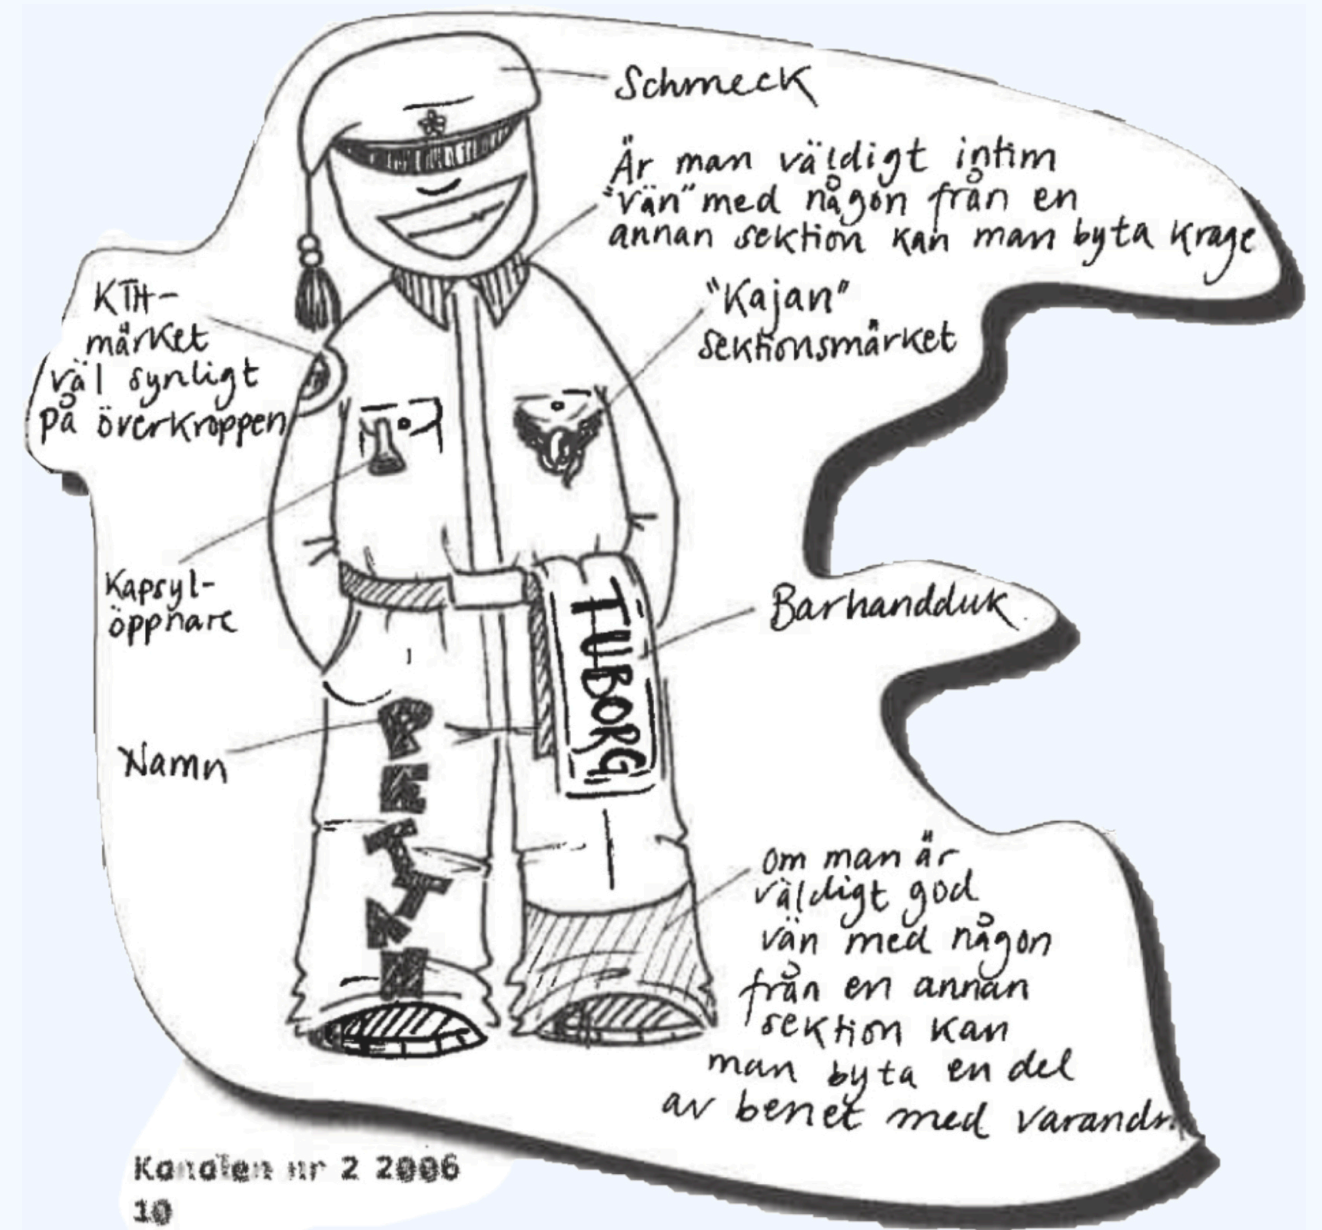 Schmeck
Är man väldigt intim
"vän" med någon från en
annan sektion kan man byta krage
"Kajan"
sektionsmärket
KTH-
märket
väl synligt
på överkroppen
Kapsyl-
öppnare
Barhandduk
TUBORG
Namn
om man är
väldigt god
vän med någon
från en annan
sektion kan
man byta en del
av benet med varandr
Kanalen nr 2 2006
10